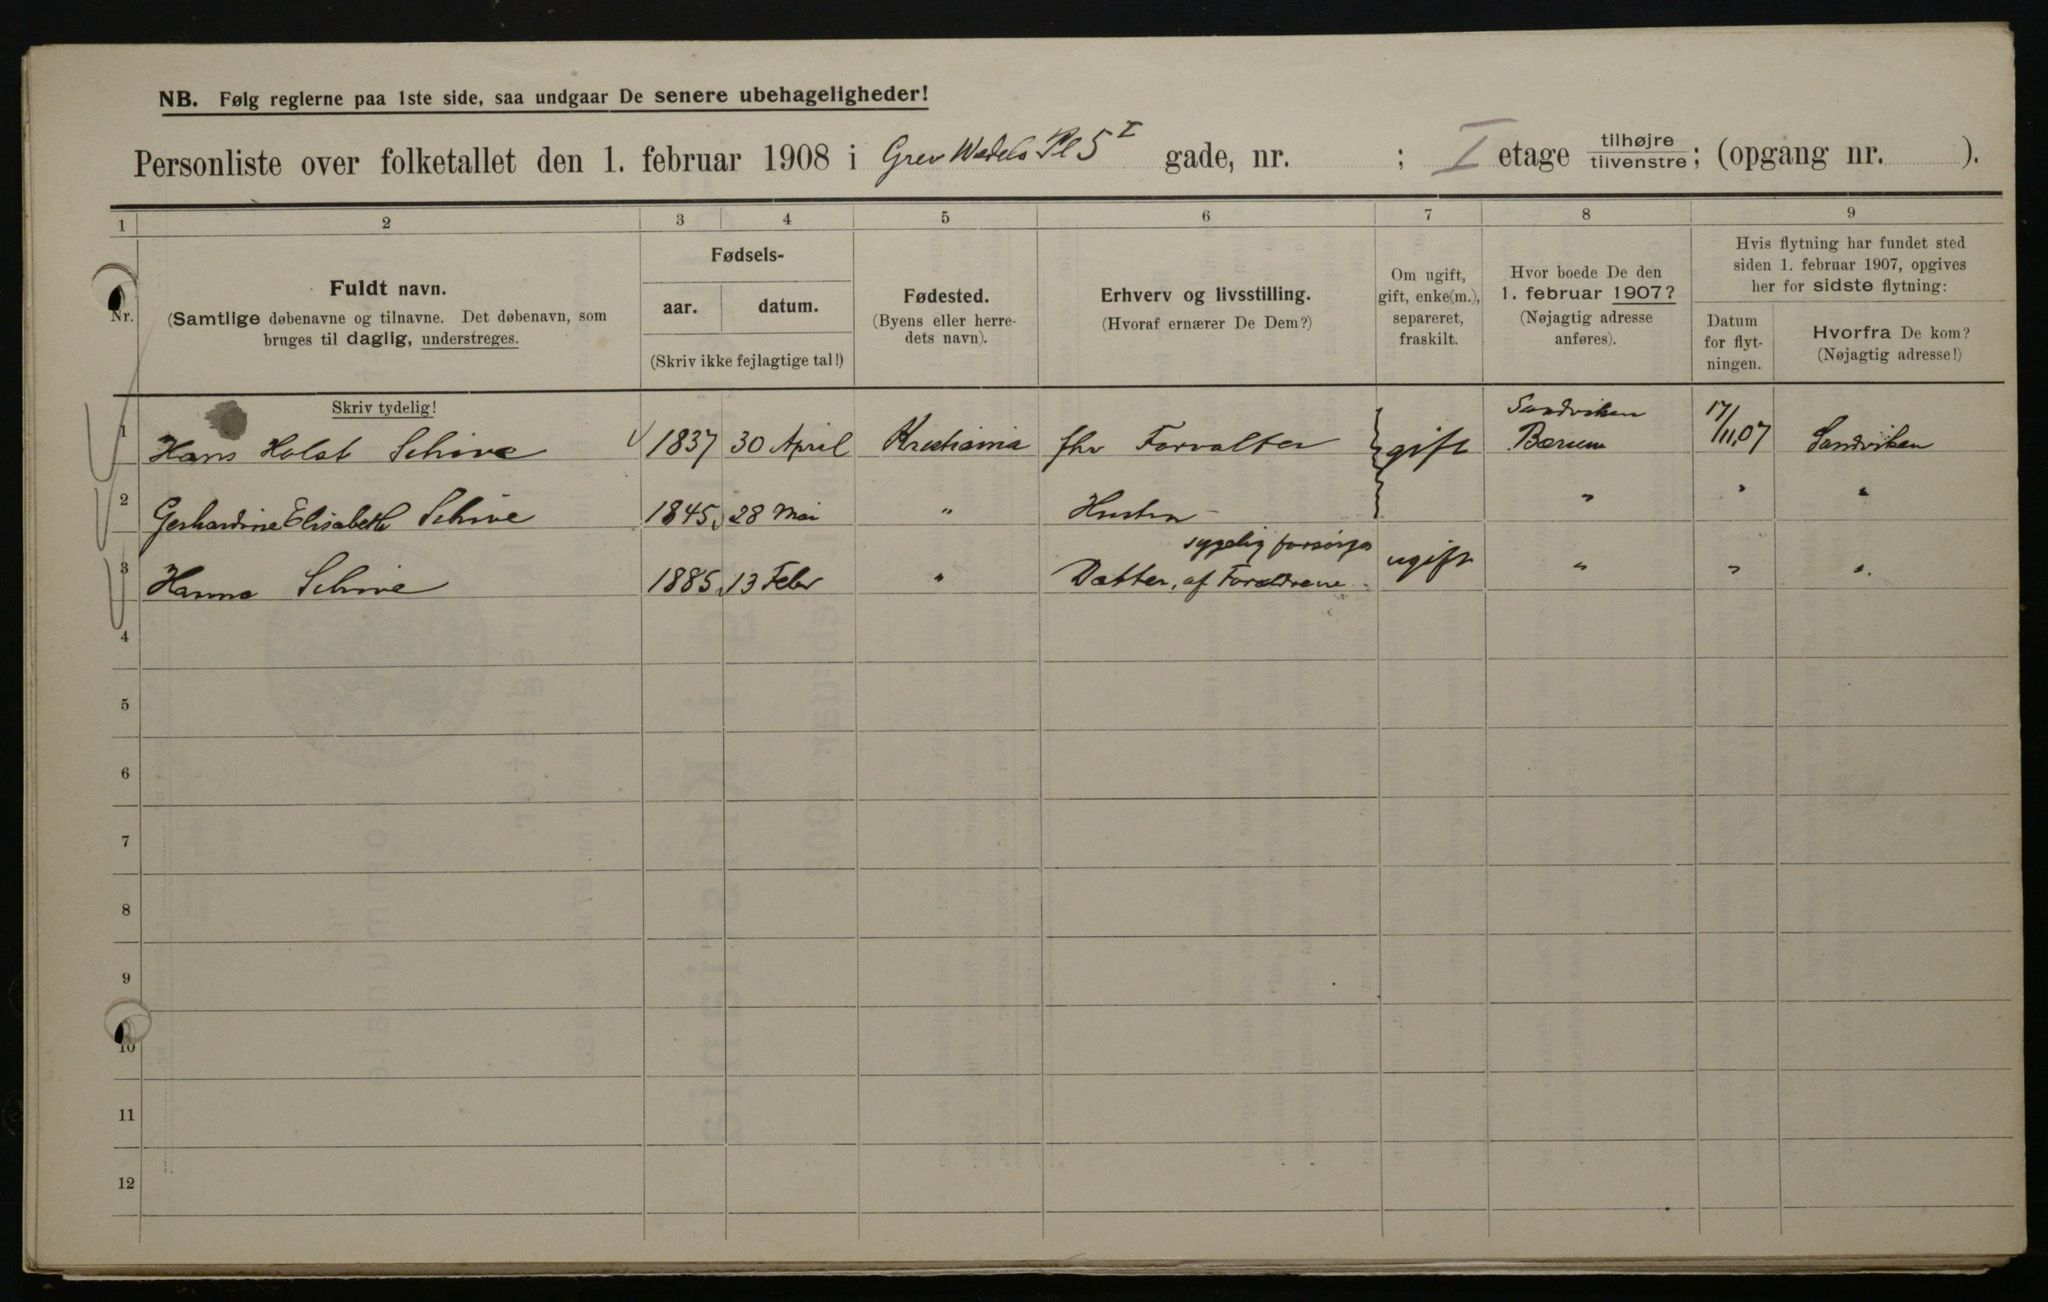 NB. Følg reglerne paa 1ste side, saa undgaar De senere ubehageligheder!
Personliste over folketallet den 1. februar 1908 i Grev Wedels Pl 5 I gade, nr. ; I etage tilhøjre tilvenstre; (opgang nr. ).
1 2 3 4 5 6 7 8 9
Nr.
Fuldt navn.
(Samtlige døbenavne og tilnavne. Det døbenavn, som
bruges til daglig, understreges.
Skriv tydelig!
Fødsels-
aar. datum.
(Skriv ikke fejlagtige tal!)
Fødested.
(Byens eller herre-
dets navn).
Erhverv og livsstilling.
(Hvoraf ernærer De Dem?)
Om ugift,
gift, enke(m.),
separeret,
fraskilt.
Hvor boede De den
1. februar 1907?
(Nøjagtig adresse
anføres).
Hvis flytning har fundet sted
siden 1. februar 1907, opgives
her for sidste flytning:
Datum
for flyt-
ningen.
Hvorfra De kom?
(Nøjagtig adresse!)
1 Hans Holst Schive 1837 30 April Kristiania fhv Forvalter gift Sandviken
Bærum 17/11 07 Sandviken
2 Gerhardine Elisabeth Schive 1845 28 Mai " Hustru " " "
3 Hanna Schive 1885 13 Febr " Datter, sygelig forsørges
af Forældrene ugift " " "
4
5
6
7
8
9
10
11
12